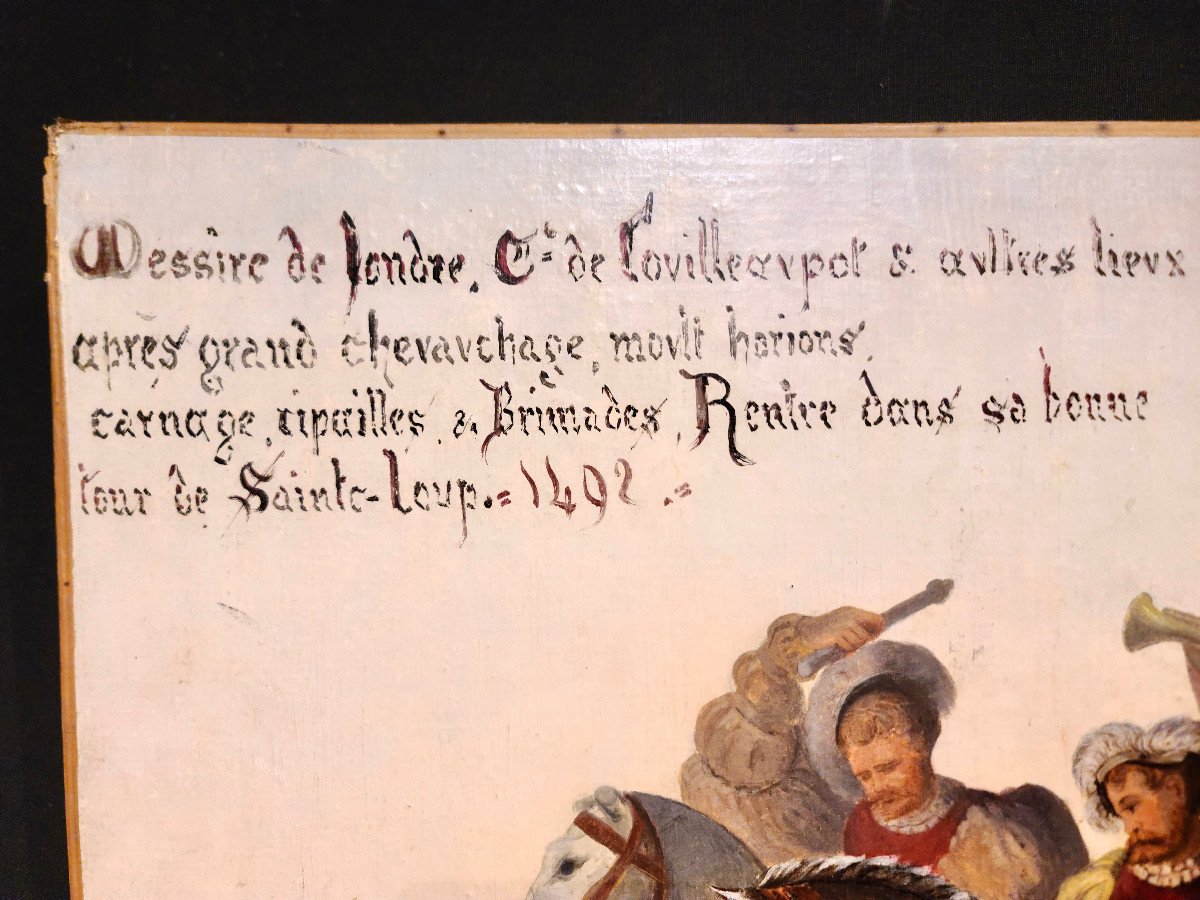 Messire de Jendre, Cᵗᵉ de Covilleavpot & avltres lievx
après grand chevavchage, movlt horions,
carnage, ripailles, & Brimades, Rentre dans sa bonne
tour de Sainte-Loup.= 1492 .=